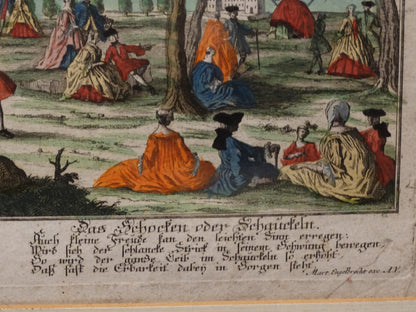 Das Schocken oder Schauckeln.
Auch kleine Freude kan den leichten Sinn erregen:
Wird sich der schlancke Strick in seinem Schwung bewegen
So wird der gantze Leib im Schauckeln so erhöht
Daß fast die Erbarkeit dabey in Sorgen steht.
Mart. Engelbrecht exc. A.V.